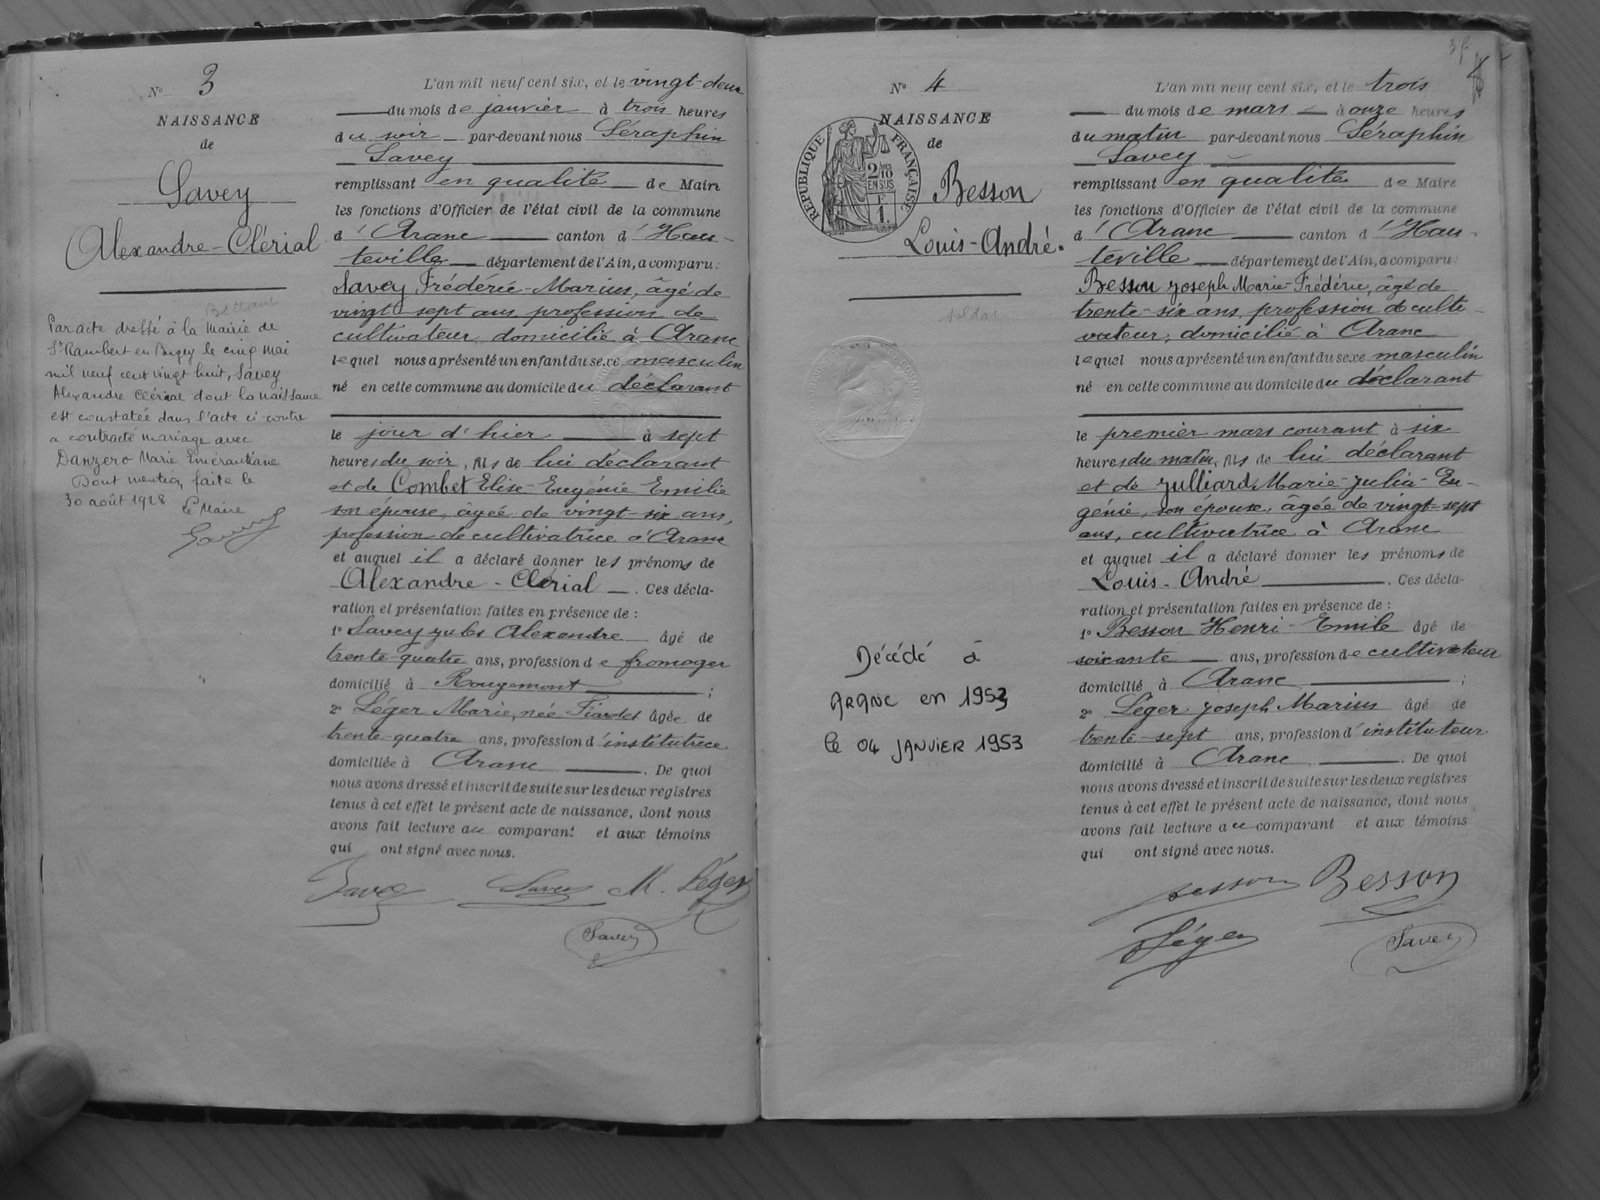 N° 3
NAISSANCE
de
Savey
Alexandre-Clérial
Par acte dressé à la Mairie de
St Rambert en Bugey le cinq mai
mil neuf cent vingt huit, Savey
Alexandre Clérial dont la naissance
est constatée dans l'acte ci-contre
a contracté mariage avec
Danzero Marie Emérantiane
Dont mention faite le
30 août 1928 Le Maire
L'an mil neuf cent six, et le vingt-deux
du mois de janvier à trois heures
du soir par-devant nous Séraphin
Savey
remplissant en qualité de Maire
les fonctions d'Officier de l'état civil de la commune
d'Aranc canton d'Hau-
teville département de l'Ain, a comparu:
Savey Frédéric-Marius, âgé de
vingt-sept ans, profession de
cultivateur, domicilié à Aranc
lequel nous a présenté un enfant du sexe masculin
né en cette commune au domicile du déclarant
le jour d'hier à sept
heures du soir, fils de lui déclarant
et de Combet Elise-Eugénie Emilie
son épouse, agée de vingt-six ans,
profession de cultivatrice à Aranc
et auquel il a déclaré donner les prénoms de
Alexandre-Clérial. Ces décla-
ration et présentation faites en présence de:
1° Savey Jules Alexandre âgé de
trente-quatre ans, profession de fromager
domicilié à Rougemont;
2° Léger Marie, née Fiardet âgée de
trente-quatre ans, profession d'institutrice
domiciliée à Aranc. De quoi
nous avons dressé et inscrit de suite sur les deux registres
tenus à cet effet le présent acte de naissance, dont nous
avons fait lecture au comparant et aux témoins
qui ont signé avec nous.
Savey Savey M. Léger
Savey
N° 4
NAISSANCE
de
RÉPUBLIQUE FRANÇAISE
2/10 EN SUS
F 1.
Besson
Louis-André.
Décédé à
ARANC en 1953
le 04 JANVIER 1953
L'an mil neuf cent six, et le trois
du mois de mars à onze heures
du matin par-devant nous Séraphin
Savey
remplissant en qualité de Maire
les fonctions d'Officier de l'état civil de la commune
d'Aranc canton d'Hau-
teville département de l'Ain, a comparu:
Besson Joseph Marie-Frédéric, âgé de
trente-six ans, profession de culti-
vateur, domicilié à Aranc
lequel nous a présenté un enfant du sexe masculin
né en cette commune au domicile du déclarant
le premier mars courant à six
heures du matin, fils de lui déclarant
et de Julliard Marie-Julia-Eu-
génie, son épouse, âgée de vingt-sept
ans, cultivatrice à Aranc
et auquel il a déclaré donner les prénoms de
Louis-André. Ces décla-
ration et présentation faites en présence de:
1° Besson Henri-Emile âgé de
soixante ans, profession de cultivateur
domicilié à Aranc;
2° Léger Joseph Marius âgé de
trente-sept ans, profession d'instituteur
domicilié à Aranc. De quoi
nous avons dressé et inscrit de suite sur les deux registres
tenus à cet effet le présent acte de naissance, dont nous
avons fait lecture au comparant et aux témoins
qui ont signé avec nous.
Besson Besson
Léger Savey